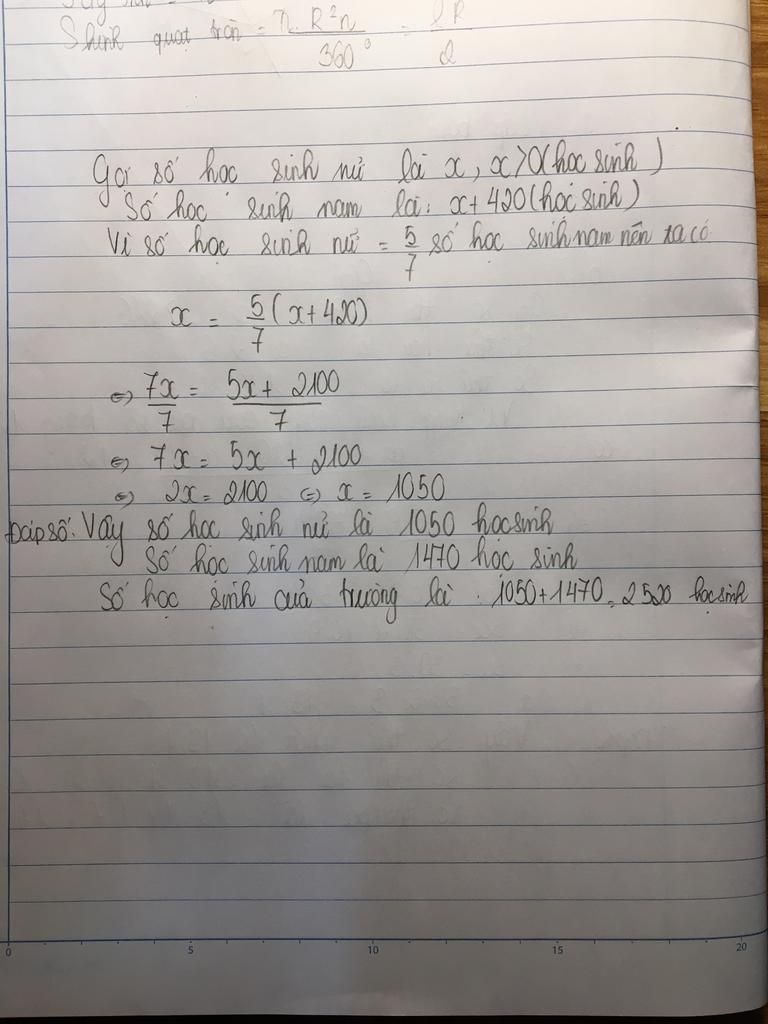 S hình quạt tròn = π.R²n/360° = lR/2
Gọi số học sinh nữ là x, x>0(học sinh)
Số học sinh nam là: x+420(học sinh)
Vì số học sinh nữ = 5/7 số học sinh nam nên ta có
x = 5/7(x+420)
⇔ 7x/7 = 5x + 2100/7
⇔ 7x = 5x + 2100
⇔ 2x = 2100 ⇔ x = 1050
Đáp số. Vậy số học sinh nữ là 1050 học sinh
Số học sinh nam là 1470 học sinh
Số học sinh của trường là . 1050+1470 = 2520 học sinh
0 5 10 15 20